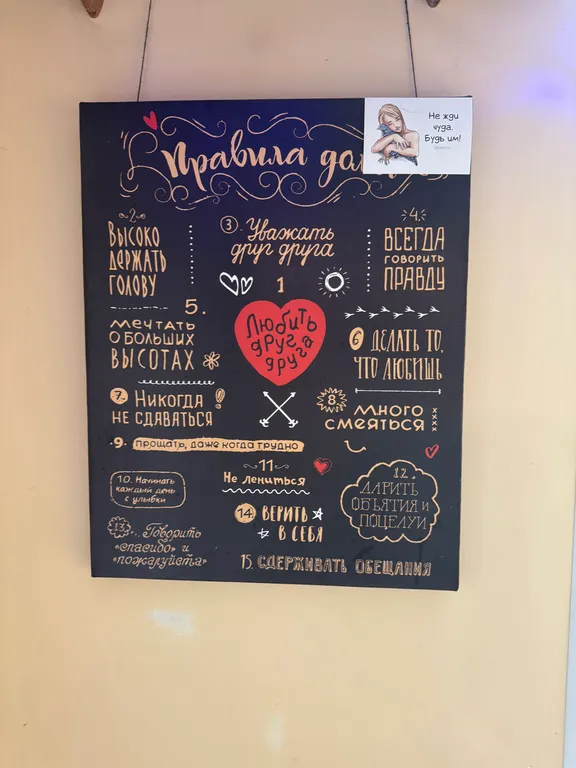 Правила
Не жди
чуда.
Будь им!
2
Высоко
держать
голову
3. Уважать
друг друга
4.
Всегда
говорить
правду
1
Любить
друг
друга
5.
Мечтать
о больших
высотах
6 Делать то,
что любишь
7. Никогда
не сдаваться
8.
Много
смеяться
9. Прощать, даже когда трудно
10. Начинать
каждый день
с улыбки
11
Не лениться
12.
Дарить
объятия и
поцелуи
13. Говорить
«спасибо» и
«пожалуйста»
14 Верить
в себя
15. Сдерживать обещания